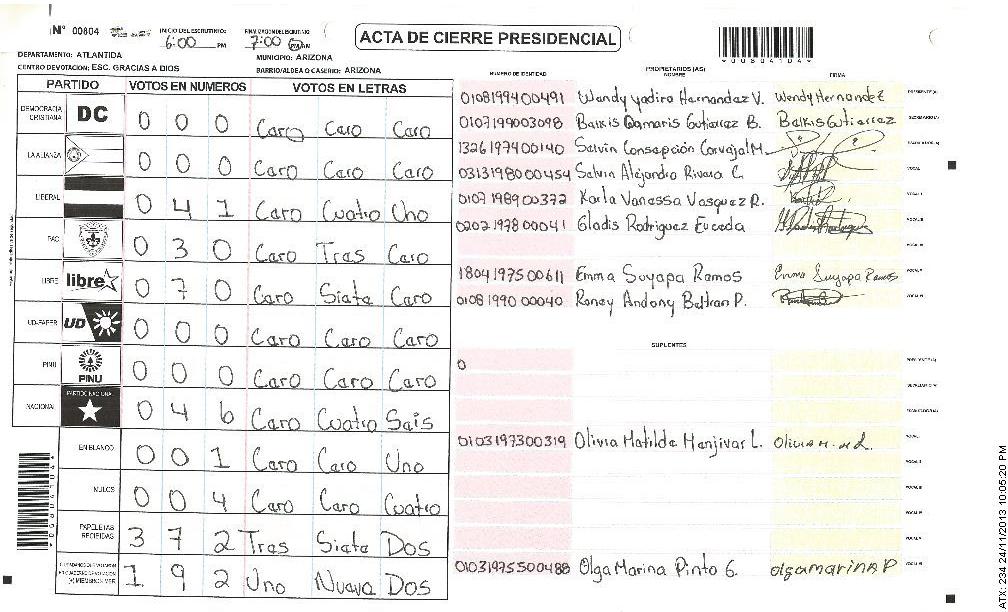 N° 00804
INICIO DEL ESCRUTINIO:
6:00 PM
7:00 PM
ACTA DE CIERRE PRESIDENCIAL
*00804104*
DEPARTAMENTO: ATLANTIDA
MUNICIPIO: ARIZONA
CENTRO DE VOTACION: ESC. GRACIAS A DIOS
BARRIO/ALDEA O CASERIO: ARIZONA
PARTIDO VOTOS EN NUMEROS VOTOS EN LETRAS
NUMERO DE IDENTIDAD PROPIETARIOS (AS) NOMBRE FIRMA
DEMOCRACIA CRISTIANA DC 0 0 0 Caro Caro Caro
LA ALIANZA 0 0 0 Caro Caro Caro
LIBERAL 0 4 1 Caro Cuatro Uno
PAC 0 3 0 Caro Tras Caro
LIBRE libre 0 7 0 Caro Siata Caro
UD-FAPER UD 0 0 0 Caro Caro Caro
PINU PINU 0 0 0 Caro Caro Caro
NACIONAL PARTIDO NACIONAL 0 4 6 Caro Cuatro Sais
EN BLANCO 0 0 1 Caro Caro Uno
NULOS 0 0 4 Caro Caro Cuatro
PAPELETAS RECIBIDAS 3 7 2 Tras Siata Dos
1 9 2 Uno Nueva Dos
0108199400491 Wendy yadira Hernandez V. Wendy Hernandez PRESIDENTE (A)
0107199003098 Balkis Damaris Gutierrez B. Balkis Gutierrez SECRETARIO (A)
1326197400140 Salvin Consepción Carvajal M.
0313198000454 Salvin Alejandro Rivera C. VOCAL I
0107198900372 Karla Vanessa Vasquez R.
0202197800041 Gladis Rodriguez Euceda
1804197500611 Emma Suyapa Ramos Emma Suyapa Ramos
0108199000040 Roney Andony Beltran P.
SUPLENTES
0 PRESIDENTE (A)
0103197300319 Olivia Matilde Manjivar L.
01031975500488 Olga Marina Pinto G. olgamarina P
ATX: 234 24/11/2013 10:05:20 PM